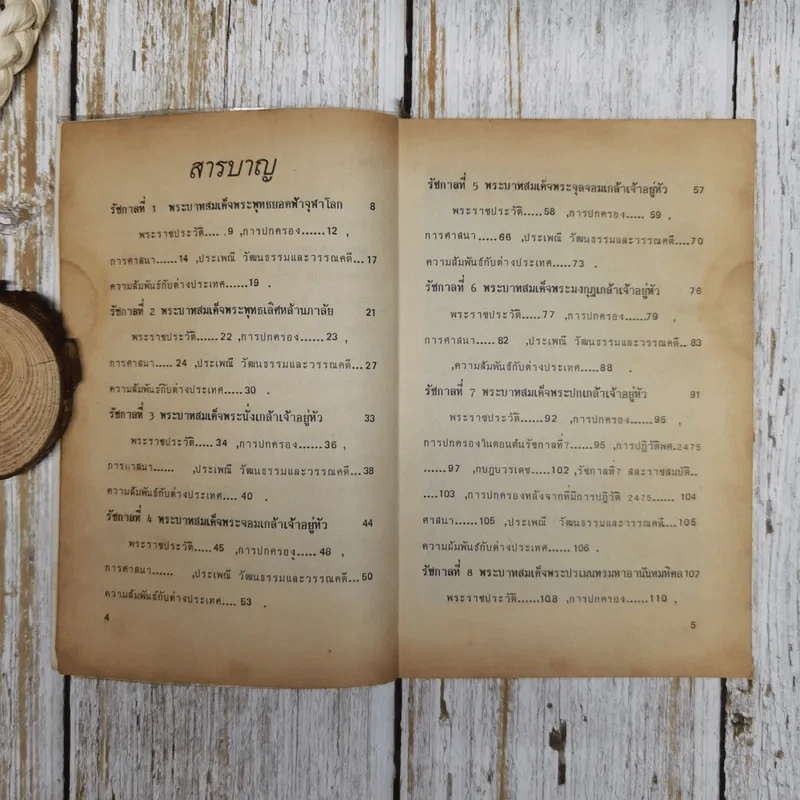 สารบาญ
รัชกาลที่ 1 พระบาทสมเด็จพระพุทธยอดฟ้าจุฬาโลก 8
พระราชประวัติ.....9 ,การปกครอง......12 ,
การศาสนา......14 ,ประเพณี วัฒนธรรมและวรรณคดี...17
ความสัมพันธ์กับต่างประเทศ.....19 .
รัชกาลที่ 2 พระบาทสมเด็จพระพุทธเลิศหล้านภาลัย 21
พระราชประวัติ......22 ,การปกครอง......23 ,
การศาสนา....24 ,ประเพณี วัฒนธรรมและวรรณคดี...27
ความสัมพันธ์กับต่างประเทศ.....30 .
รัชกาลที่ 3 พระบาทสมเด็จพระนั่งเกล้าเจ้าอยู่หัว 33
พระราชประวัติ.....34 ,การปกครอง......36 ,
การศาสนา...... ,ประเพณี วัฒนธรรมและวรรณคดี...38
ความสัมพันธ์กับต่างประเทศ.... 40 .
รัชกาลที่ 4 พระบาทสมเด็จพระจอมเกล้าเจ้าอยู่หัว 44
พระราชประวัติ.....45 ,การปกครอง.....48 ,
การศาสนา...... ,ประเพณี วัฒนธรรมและวรรณคดี...50
ความสัมพันธ์กับต่างประเทศ.... 53 .
4
รัชกาลที่ 5 พระบาทสมเด็จพระจุลจอมเกล้าเจ้าอยู่หัว 57
พระราชประวัติ.....58 ,การปกครอง..... 59 ,
การศาสนา.....66 ,ประเพณี วัฒนธรรมและวรรณคดี....70
ความสัมพันธ์กับต่างประเทศ.....73 .
รัชกาลที่ 6 พระบาทสมเด็จพระมงกุฎเกล้าเจ้าอยู่หัว 76
พระราชประวัติ.....77 ,การปกครอง.....79 ,
การศาสนา.....82 ,ประเพณี วัฒนธรรมและวรรณคดี.. 83
,ความสัมพันธ์กับต่างประเทศ.....88 .
รัชกาลที่ 7 พระบาทสมเด็จพระปกเกล้าเจ้าอยู่หัว 91
พระราชประวัติ......92 ,การปกครอง......95 ,
การปกครองในตอนต้นรัชกาลที่7......95 ,การปฏิวัติพศ.2475
......97 ,กบฎบวรเดช.....102 ,รัชกาลที่7 สละราชสมบัติ..
....103 ,การปกครองหลังจากที่มีการปฏิวัติ 2475...... 104
ศาสนา......105 ,ประเพณี วัฒนธรรมและวรรณคดี...105
ความสัมพันธ์กับต่างประเทศ......106 .
รัชกาลที่ 8 พระบาทสมเด็จพระปรเมนทรมหาอานันทมหิดล107
พระราชประวัติ......108 ,การปกครอง......110 ,
5